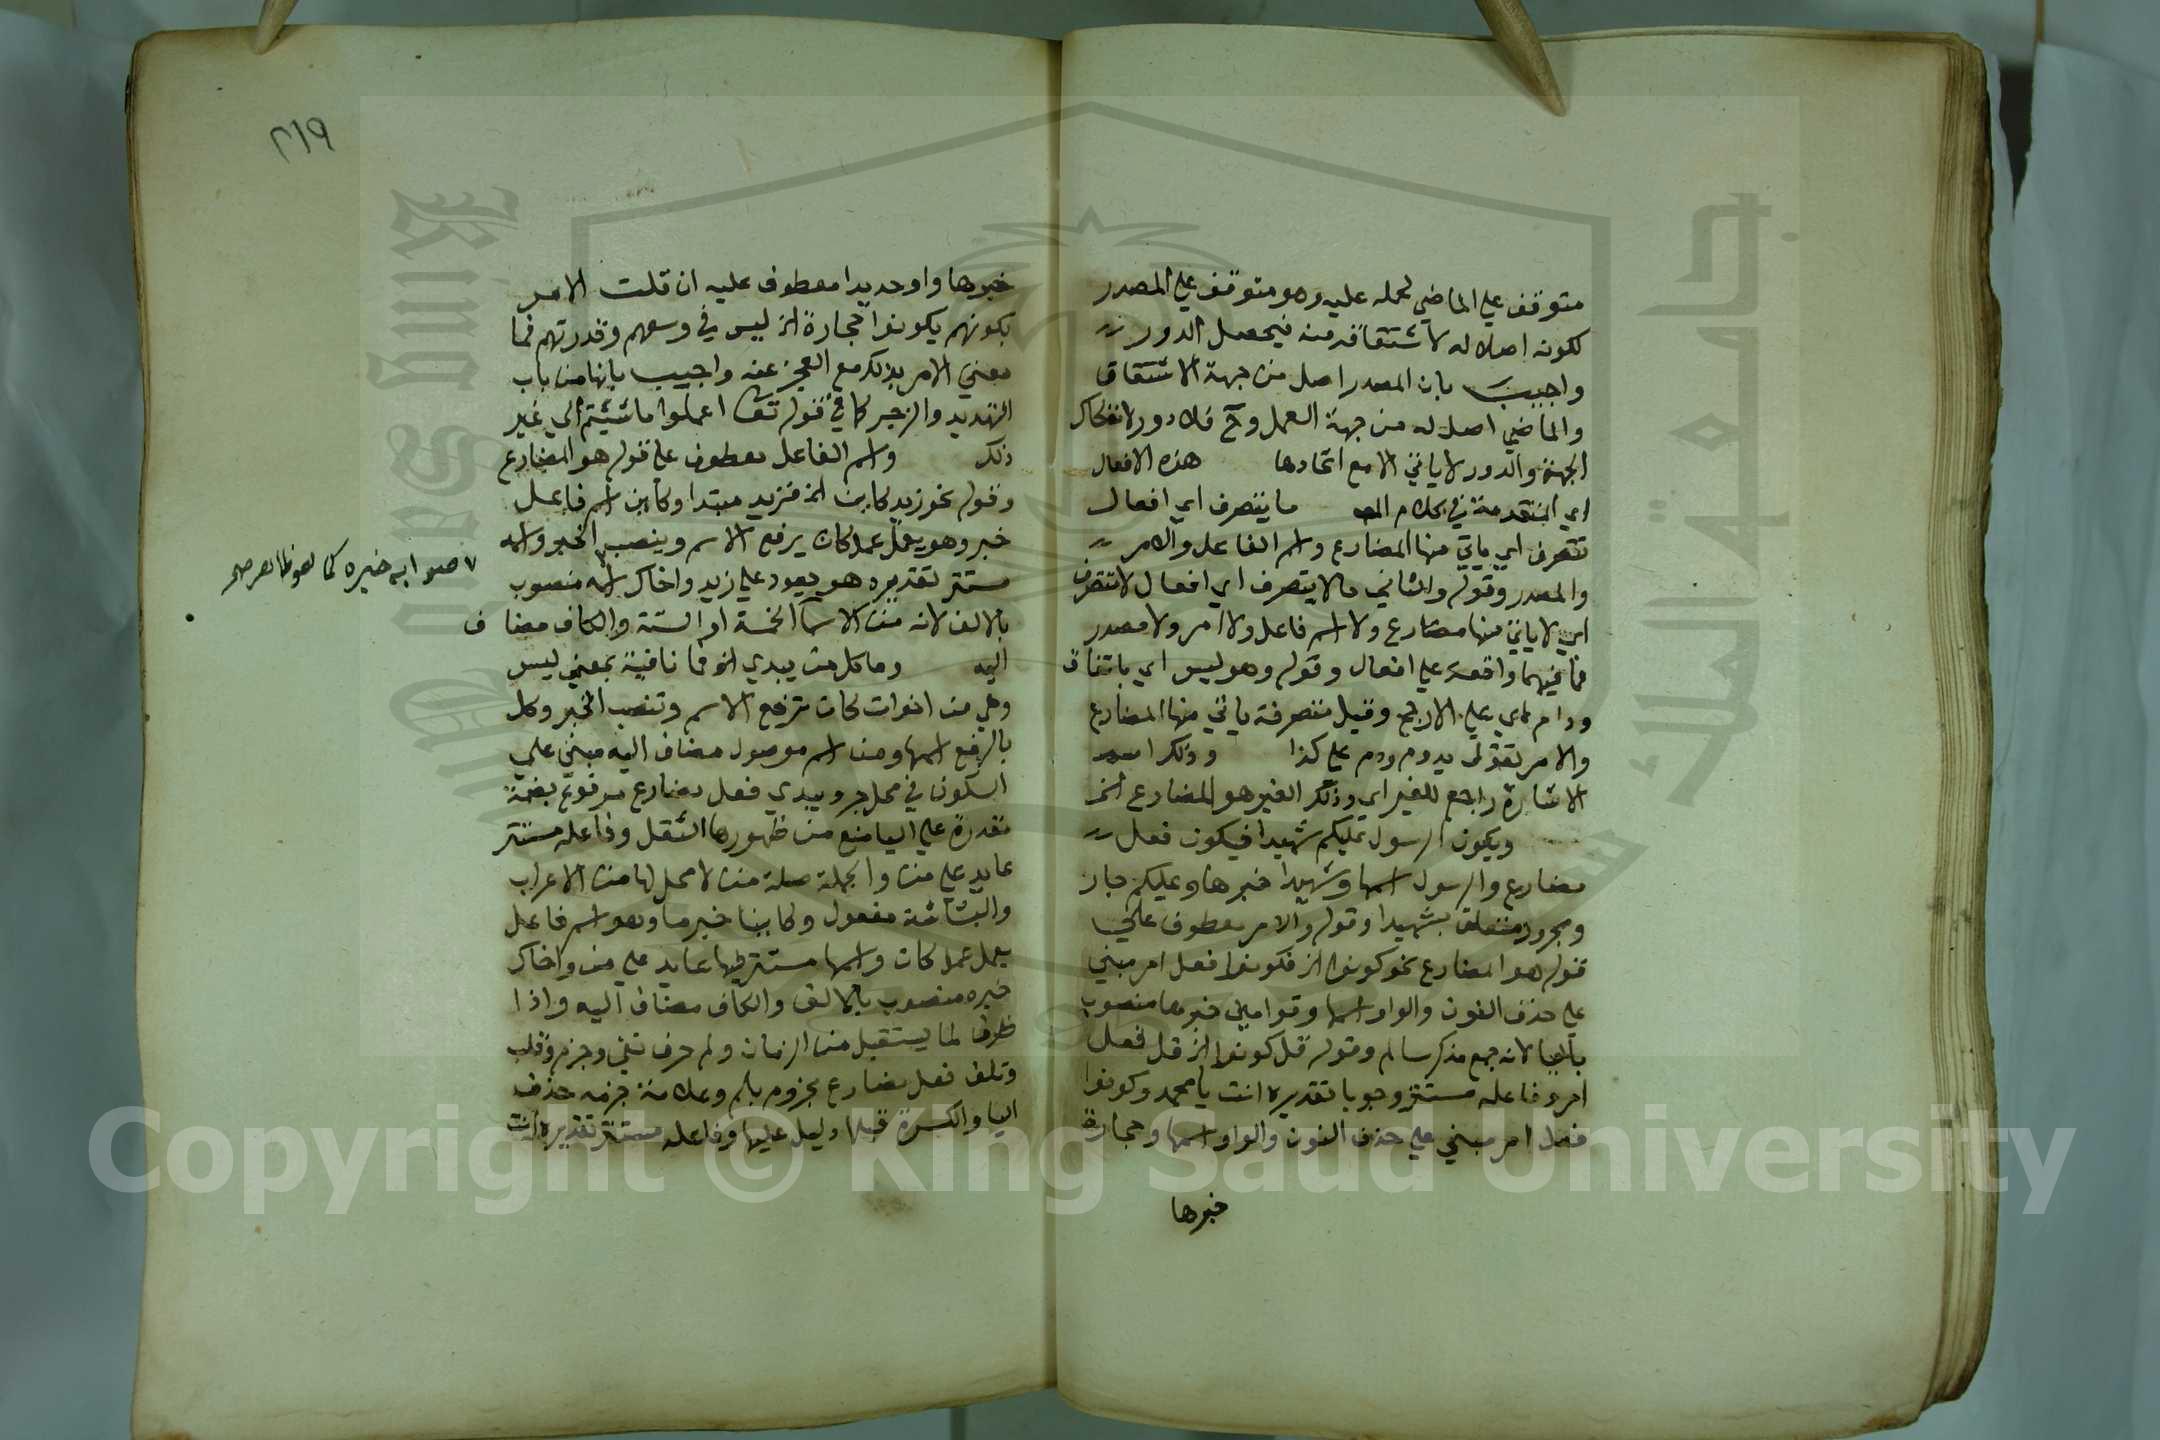 متوقف علي الماضي لحمله عليه وهو متوقف علي المصدر
لكونه اصلا له لاشتقاقه منه فيحصل الدور
واجيب بان المصدر اصل من جهة الاشتقاق
والماضي اصل له من جهة العمل وح فلا دور لانفكاك
الجهة والدور لا ياتي الا مع اتحادها هذه الافعال
اي المتقدمة في كلام المص ما يتصرف اي افعال
تتصرف اي ياتي منها المضارع واسم الفاعل والامر
والمصدر وقوله والثاني مالا يتصرف اي افعال لا تتصرف
اي لا ياتي منها مضارع ولا اسم فاعل ولا امر ولا مصدر
فما فيهما واقعة علي افعال وقوله وهو ليس اي باتفاق
ودام اي علي الارجح وقيل متصرفة ياتي منها المضارع
والامر تقول يدوم ودم علي كذا وذلك اسم
الاشارة راجع للغير اي وذلك الغير هو المضارع الخ
ويكون الرسول عليكم شهيدا فيكون فعل
مضارع والرسول اسمها وشهيدا خبرها وعليكم جار
ومجرور متعلق بشهيدا وقوله والامر معطوف علي
قوله هو المضارع نحو كونوا الخ فكونوا فعل امر مبني
علي حذف النون والواو اسمها وقوامين خبرها منصوب
بالياء لانه جمع مذكر سالم وقوله قل كونوا الخ قل فعل
امر وفاعله مستتر وجوبا تقديره انت يا محمد وكونوا
فعل امر مبني علي حذف النون والواو اسمها وحجارة
خبرها
٢١٩
خبرها واو حديدا معطوف عليه ان قلت الامر
بكونهم يكونوا حجارة الخ ليس في وسعهم وقدرتهم فما
معني الامر بذلك مع العجز عنه واجيب بانها من باب
التهديد والزجر كما في قوله تعا اعملوا ما شئتم الي غير
ذلك واسم الفاعل معطوف علي قوله هو المضارع
وقوله نحو زيد كاين الخ فزيد مبتدا وكاين اسم فاعل
خبر وهو يعمل عمل كان يرفع الاسم وينصب الخبر واسمه
مستتر تقديره هو يعود علي زيد واخاك اسمه منصوب
بالالف لانه من الاسما الخمسة او الستة والكاف مضاف
اليه وما كل من يبدي الخ فما نافية بمعني ليس
وهي من اخوات كان ترفع الاسم وتنصب الخبر وكل
بالرفع اسمها ومن اسم موصول مضاف اليه مبني علي
السكون في محل جر ويبدي فعل مضارع مرفوع بضمة
مقدرة علي اليا منع من ظهورها الثقل وفاعله مستتر
عايد علي من والجملة صلة من لا محل لها من الاعراب
والبشاشة مفعول وكاينا خبر ما وهو اسم فاعل
يعمل عمل كان واسمها مستتر فيها عايد علي من واخاك
خبره منصوب بالالف والكاف مضاف اليه واذا
ظرف لما يستقبل من الزمان ولم حرف نفي وجزم وقلب
وتلف فعل مضارع مجزوم بلم وعلامة جزمه حذف
اليا والكسرة قبلها دليل عليها وفاعله مستتر تقديره انت
صوابه خبره كما هو ظاهر
Copyright © King Saud University